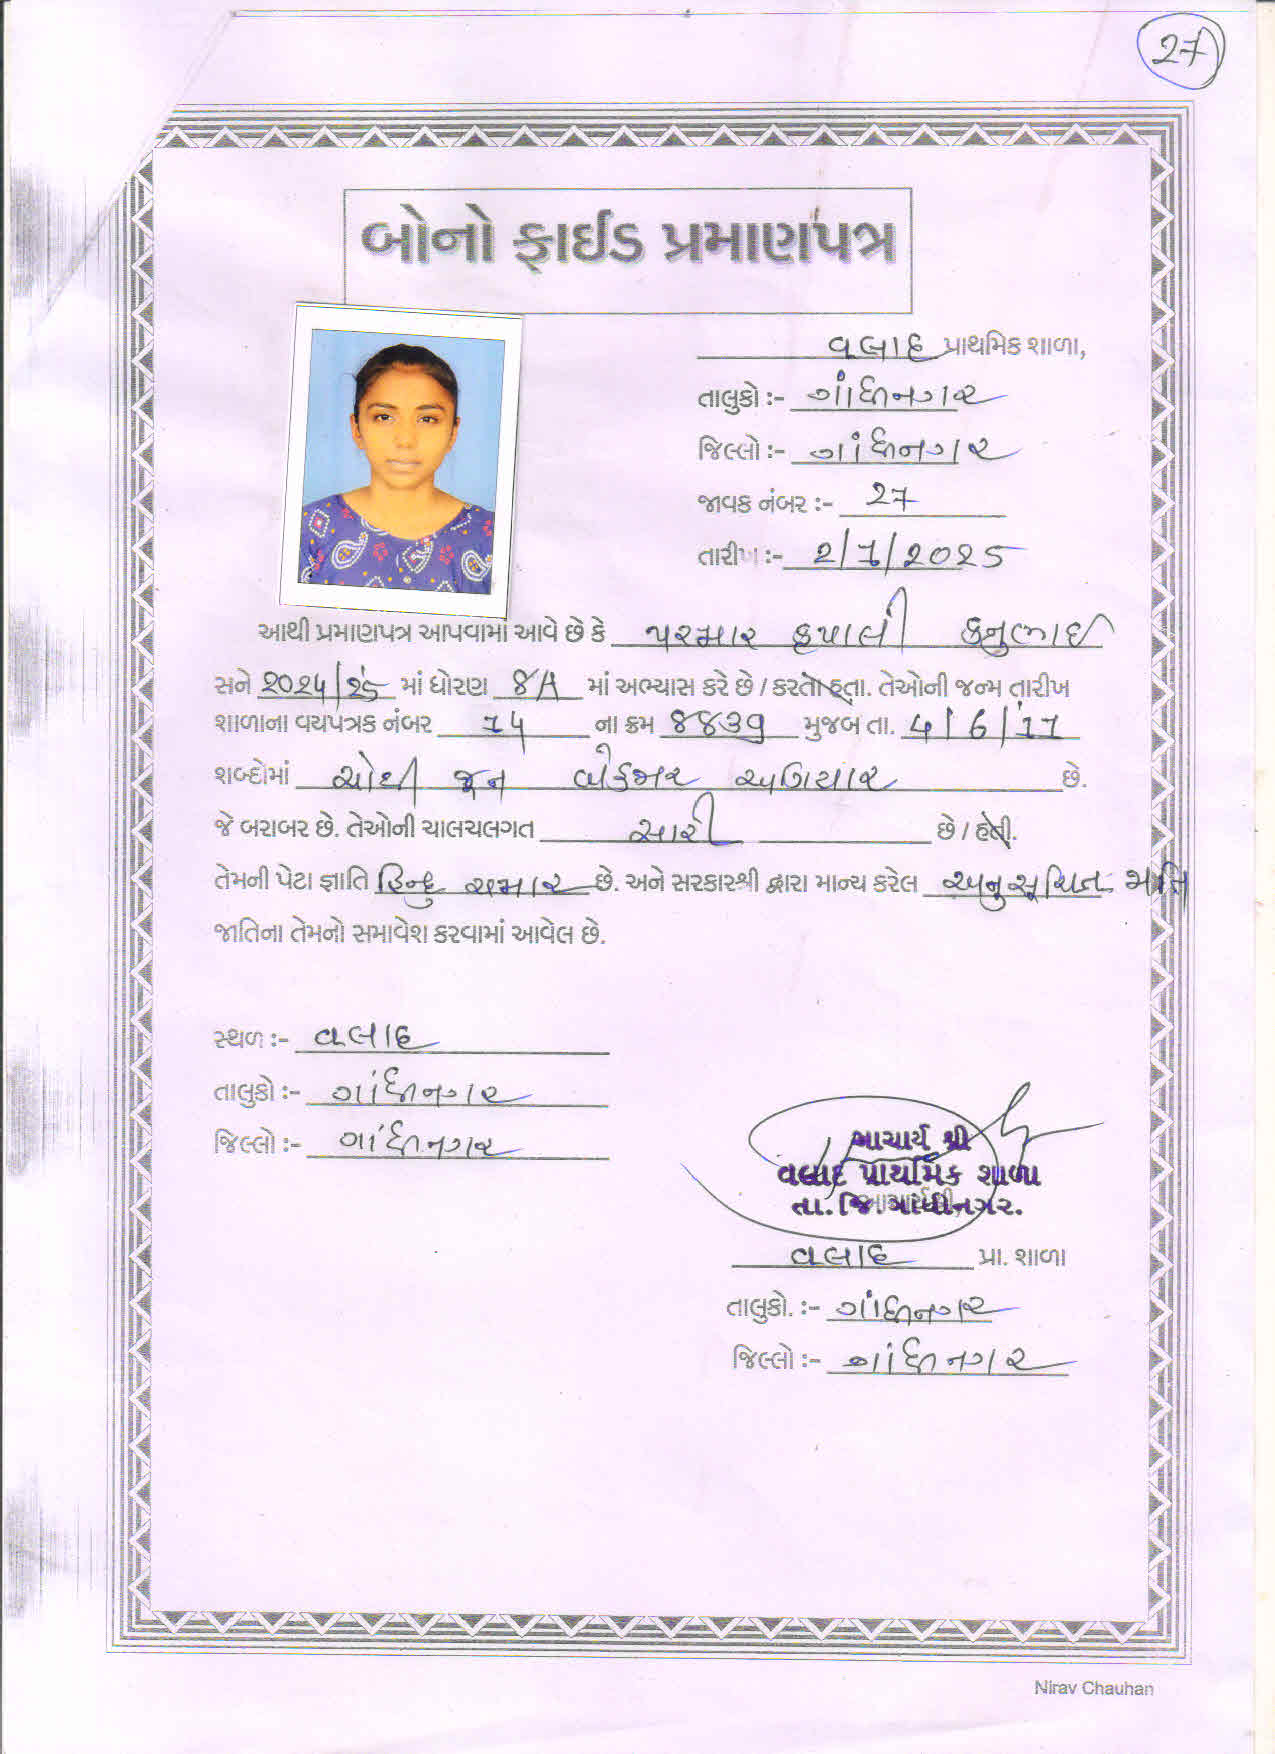 27
બોનો ફાઈડ પ્રમાણપત્ર
વલાદ પ્રાથમિક શાળા,
તાલુકો :- ગાંધીનગર
જિલ્લો :- ગાંધીનગર
જાવક નંબર :- 27
તારીખ :- 2/7/2025
આથી પ્રમાણપત્ર આપવામાં આવે છે કે પરમાર કનુભાઈ
સને 2024/25 માં ધોરણ 8A માં અભ્યાસ કરે છે / કરતો હતા. તેઓની જન્મ તારીખ
શાળાના વયપત્રક નંબર 14 ના ક્રમ 8839 મુજબ તા. 4/6/11
શબ્દોમાં ચોથી જૂન બેહજાર અગિયાર છે.
જે બરાબર છે. તેઓની ચાલચલગત સારી છે / હતી.
તેમની પેટા જ્ઞાતિ હિન્દુ ચમાર છે. અને સરકારશ્રી દ્વારા માન્ય કરેલ અનુસૂચિત
જાતિના તેમનો સમાવેશ કરવામાં આવેલ છે.
સ્થળ :- વલાદ
તાલુકો :- ગાંધીનગર
જિલ્લો :- ગાંધીનગર
આચાર્ય શ્રી
વલાદ પ્રાથમિક શાળા
તા.જિ.ગાંધીનગર.
આચાર્યશ્રી,
વલાદ પ્રા. શાળા
તાલુકો. :- ગાંધીનગર
જિલ્લો :- ગાંધીનગર
Nirav Chauhan